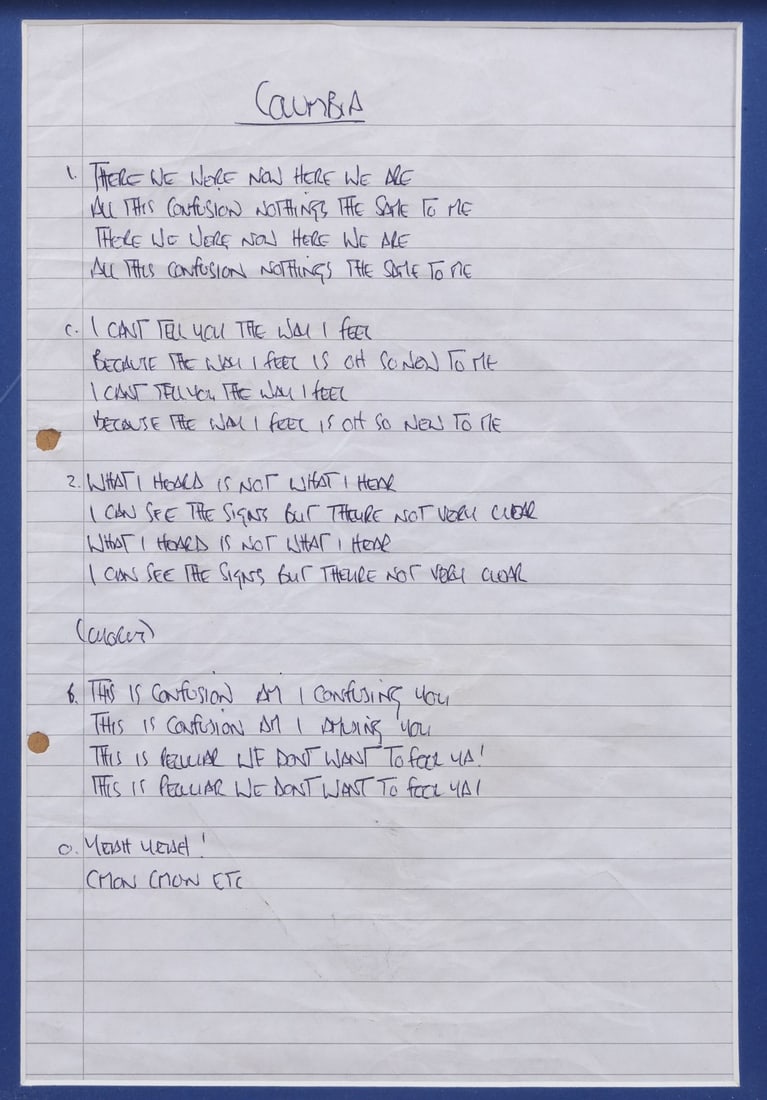 COLUMBIA
1. THERE WE WERE NOW HERE WE ARE
ALL THIS CONFUSION NOTHINGS THE SAME TO ME
THERE WE WERE NOW HERE WE ARE
ALL THIS CONFUSION NOTHINGS THE SAME TO ME
C. I CANT TELL YOU THE WAY I FEEL
BECAUSE THE WAY I FEEL IS OH SO NEW TO ME
I CANT TELL YOU THE WAY I FEEL
BECAUSE THE WAY I FEEL IS OH SO NEW TO ME
2. WHAT I HEARD IS NOT WHAT I HEAR
I CAN SEE THE SIGNS BUT THEURE NOT VERY CLEAR
WHAT I HEARD IS NOT WHAT I HEAR
I CAN SEE THE SIGNS BUT THEURE NOT VERY CLEAR
B. THIS IS CONFUSION AM I CONFUSING YOU
THIS IS CONFUSION AM I AMUSING YOU
THIS IS PECULIAR WE DONT WANT TO FEEL YA!
THIS IS PECULIAR WE DONT WANT TO FEEL YA!
O. YEAH YEAH!
CMON CMON ETC